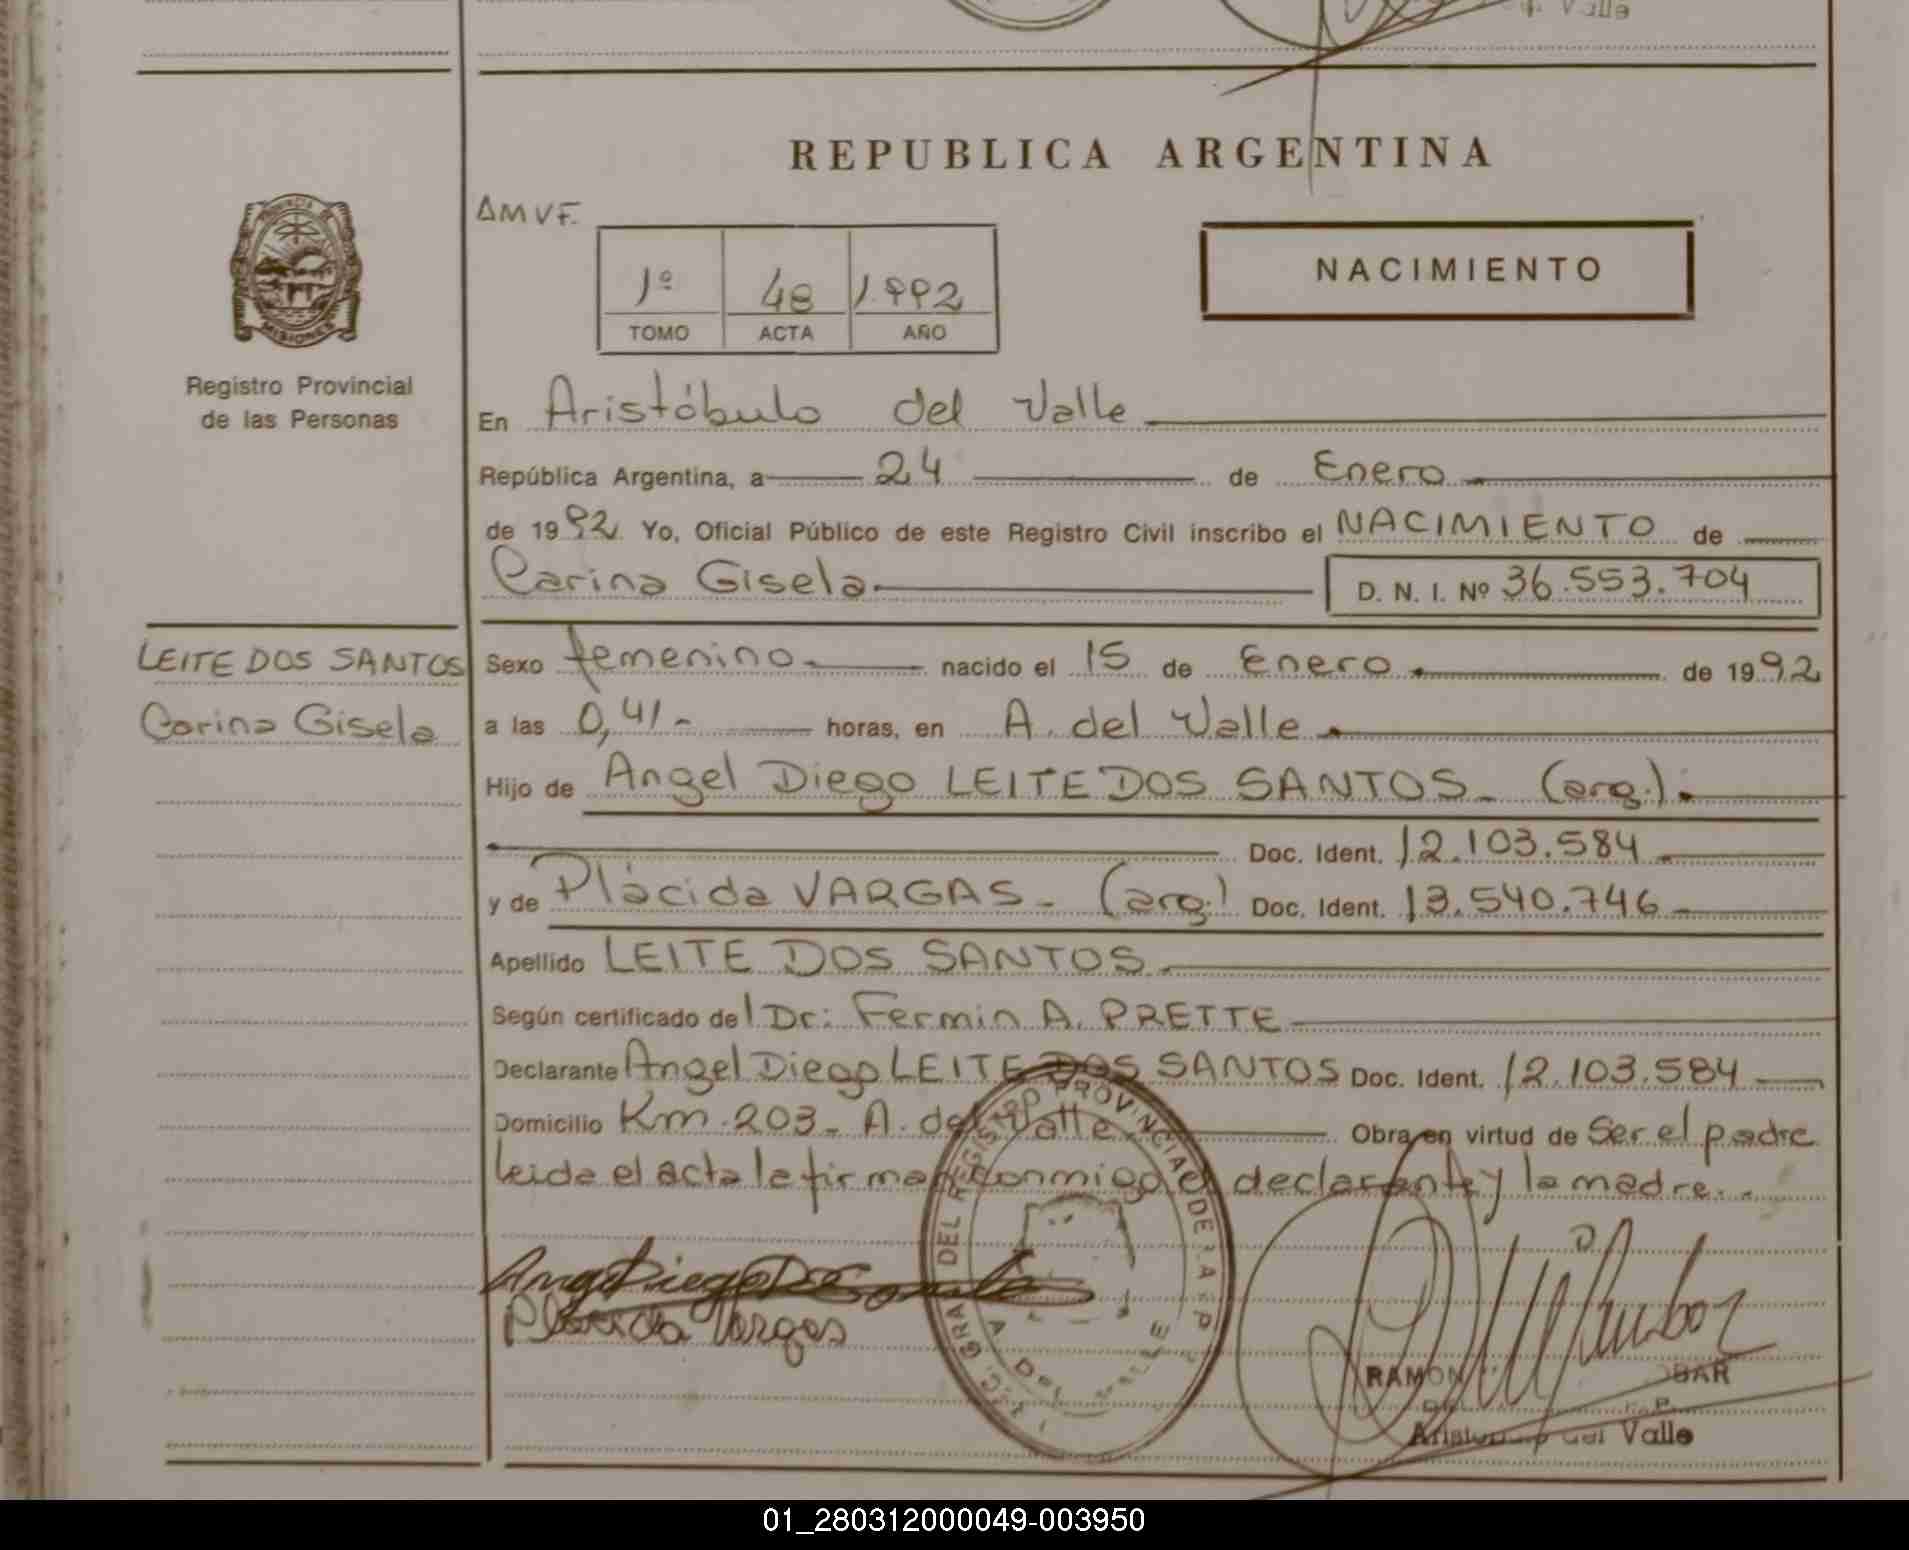 Valle
REPUBLICA ARGENTINA
AMVF.
PROVINCIA DE
MISIONES
Registro Provincial
de las Personas
1º 48 1.992
TOMO ACTA AÑO
NACIMIENTO
En Aristóbulo del Valle
República Argentina, a 24 de Enero
de 1992 Yo, Oficial Público de este Registro Civil inscribo el NACIMIENTO de
Carina Gisela D. N. I. Nº 36.553.704
LEITE DOS SANTOS
Carina Gisela
Sexo femenino nacido el 15 de Enero de 1992
a las 0,41- horas, en A. del Valle
Hijo de Angel Diego LEITE DOS SANTOS - (arg.).
Doc. Ident. 12.103.584
y de Plácida VARGAS - (arg.) Doc. Ident. 13.540.746
Apellido LEITE DOS SANTOS
Según certificado del Dr: Fermin A. PRETTE
Declarante Angel Diego LEITE DOS SANTOS Doc. Ident. 12.103.584
Domicilio Km. 203 - A. del Valle Obra en virtud de Ser el padre
leida el acta la firman conmigo el declarante y la madre.
DEL REGISTRO PROVINCIAL DE LA P
A. DEL VALLE
Placida Vargas
RAMON
Valle
01_280312000049-003950